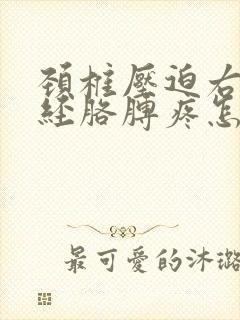 頸椎壓迫右
經胳膊疼怎
最可愛的沐璐